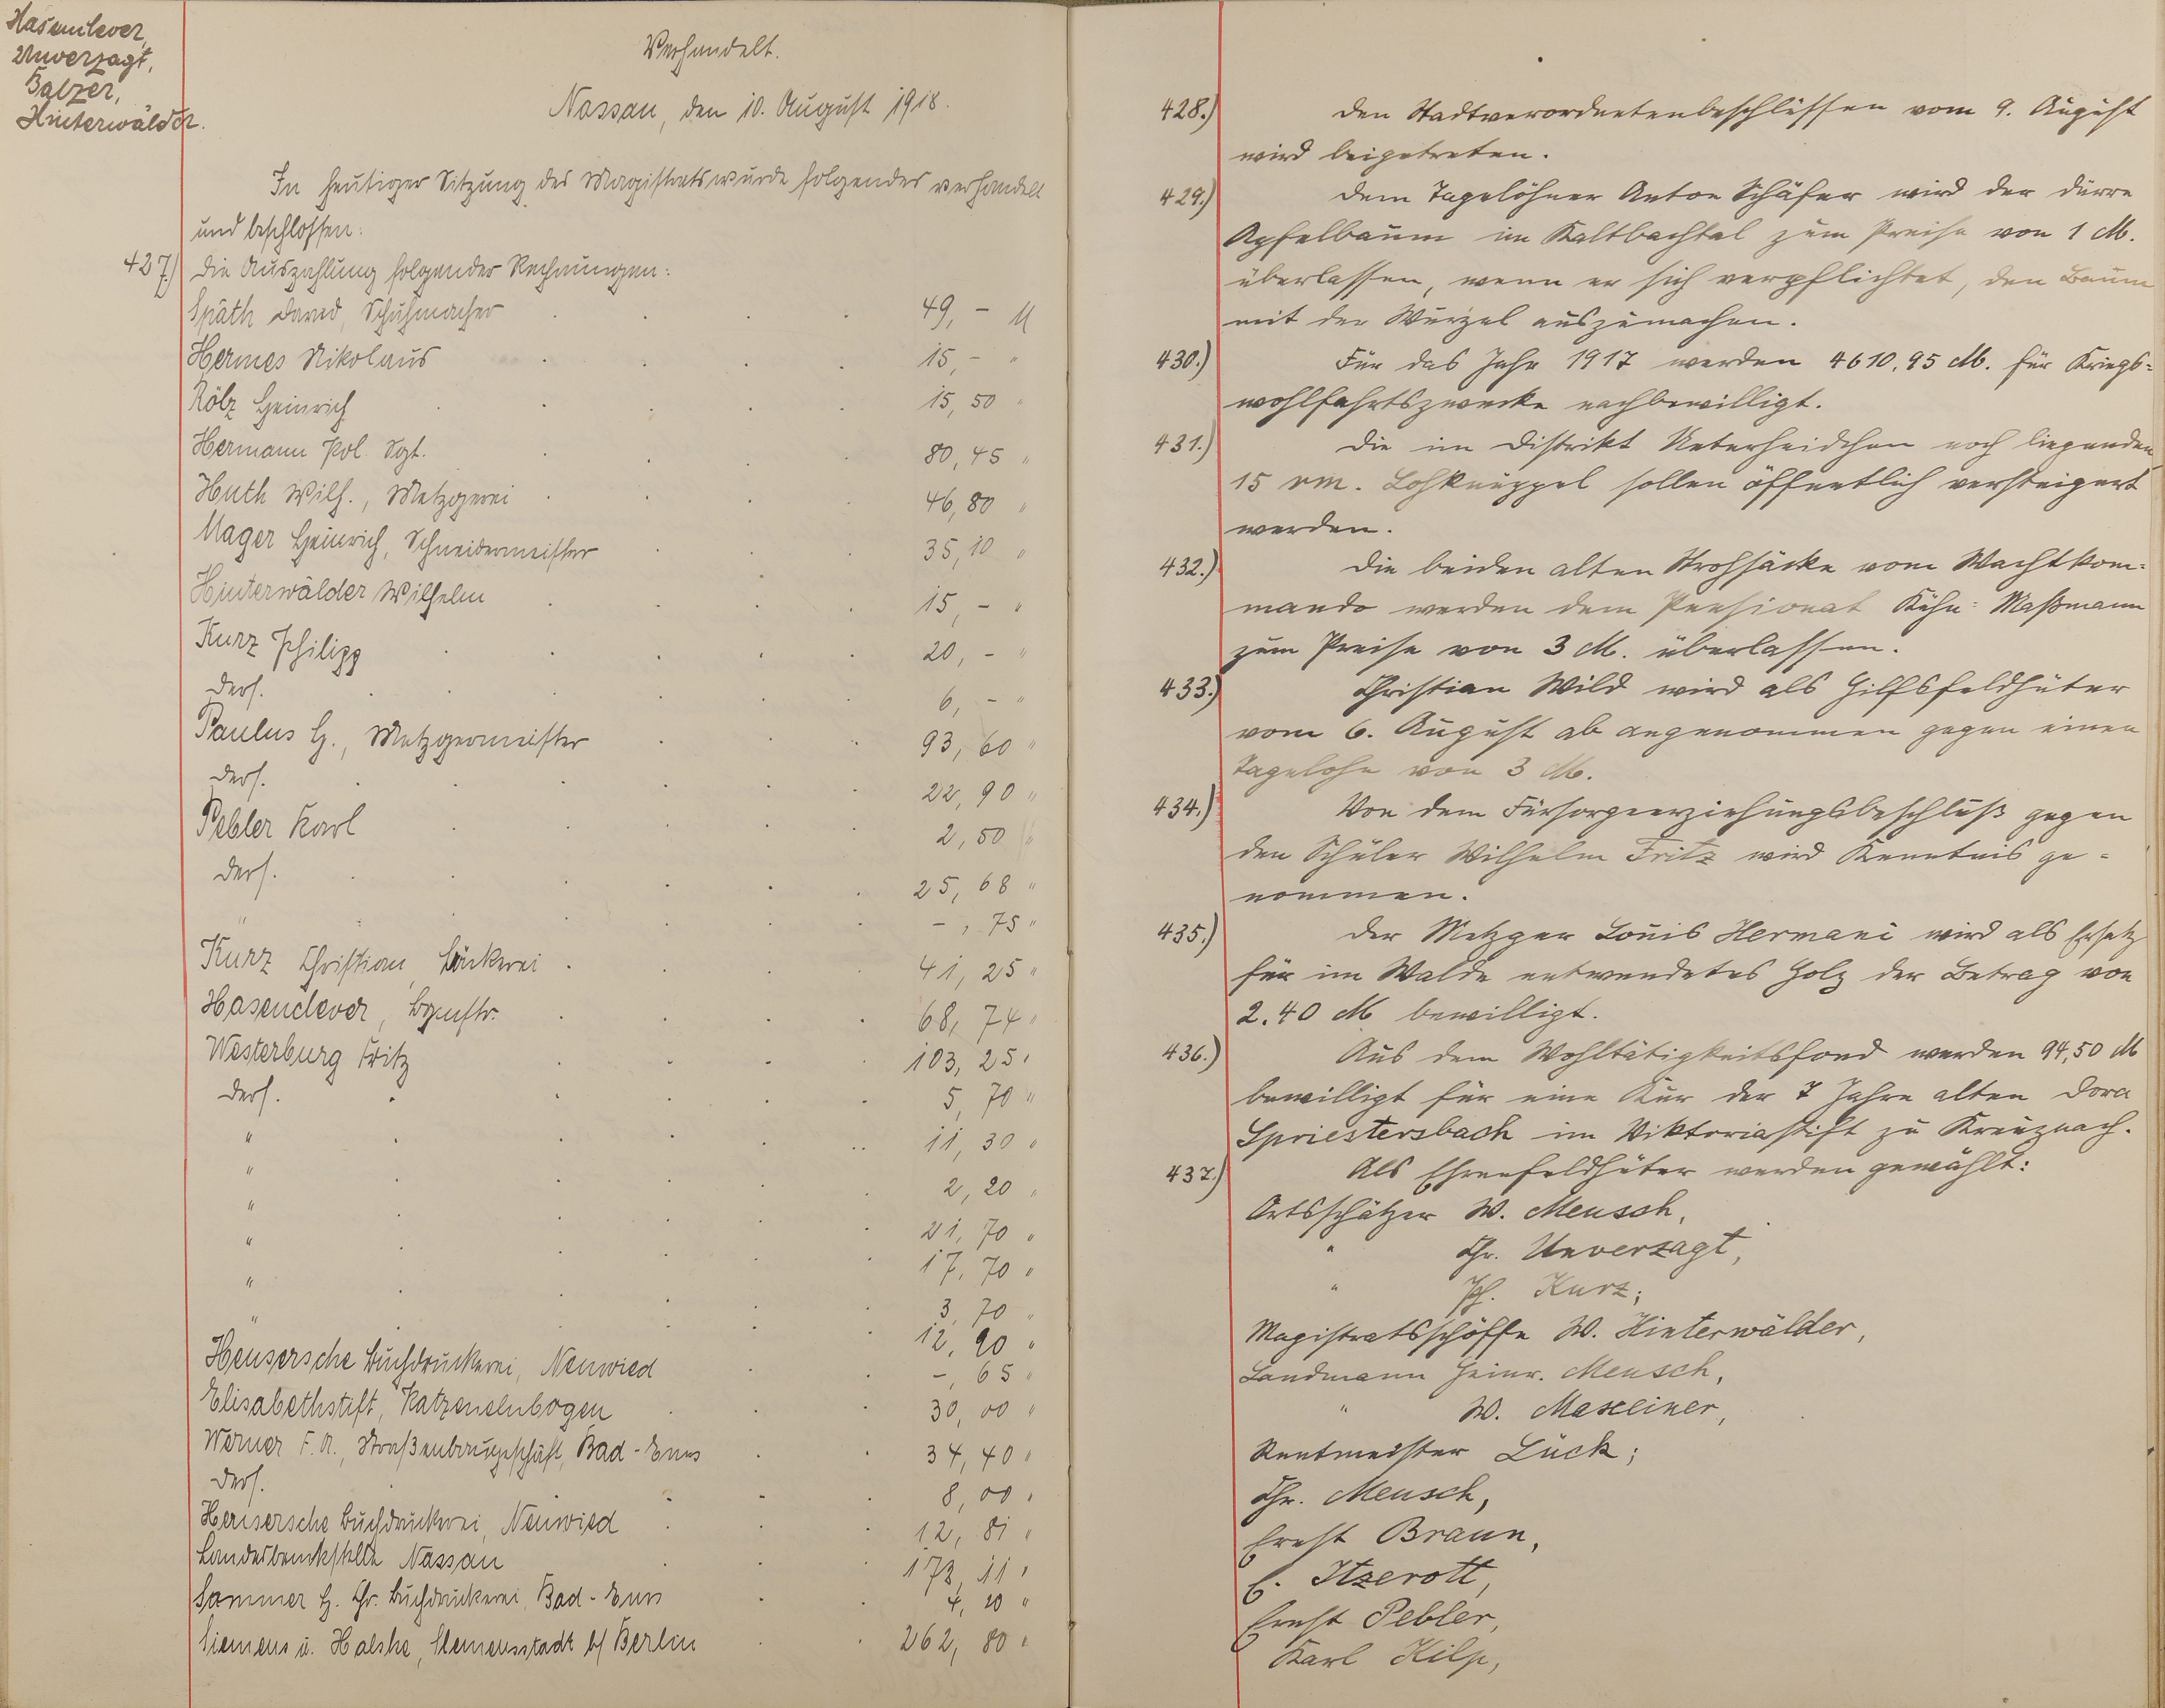 Hasenclever,
Unverzagt,
Balzer,
Hinterwälder.
Verhandelt.
Nassau, den 10. August 1918.
In heutiger Sitzung des Magistrats wurde folgendes verhandelt
und beschlossen:
427.) Die Auszahlung folgender Rechnungen:
Späth David, Schuhmacher 49, - M
Hermes Nikolaus 15, - "
Rölz Heinrich 15, 50 "
Hermann Pol. Sgt. 80, 45 "
Huth Wilh., Metzgerei 46, 80 "
Mager Heinrich, Schneidermeister 35, 10 "
Hinterwälder Wilhelm 15, - "
Kurz Philipp 20, - "
ders. 6, - "
Paulus H., Metzgermeister 93, 60 "
ders. 22, 90 "
Pebler Karl 2, 50 "
ders. 25, 68 "
" -, 75 "
Kurz Christian, Bäckerei 41, 25 "
Hasenclever, Bgmstr. 68, 74 "
Westerburg Fritz 103, 25 "
ders. 5, 70 "
" 11, 30 "
" 2, 20 "
" 21, 70 "
" 17, 70 "
" 3, 70 "
" 12, 90 "
Heusersche Buchdruckerei, Neuwied -, 65 "
Elisabethstift, Katzenelnbogen 30, 00 "
Werner F. A., Straßenbaugeschäft, Bad-Ems 34, 40 "
ders. 8, 00 "
Heusersche Buchdruckerei, Neuwied 12, 81 "
Landesbankstelle Nassau 173, 11 "
Sommer H. Chr. Buchdruckerei, Bad-Ems 4, 20 "
Siemens u. Halske, Siemensstadt b/ Berlin 262, 80 "
428.) Den Stadtverordnetenbeschlüssen vom 9. August
wird beigetreten.
429.) Dem Tagelöhner Anton Schäfer wird der dürre
Apfelbaum im Kaltbachtal zum Preise von 1 M.
überlassen, wenn er sich verpflichtet, den Baum
mit der Wurzel auszumachen.
430.) Für das Jahr 1917 werden 4610,95 M. für Kriegs-
wohlfahrtszwecke nachbewilligt.
431.) Die im Distrikt Unterheidchen noch liegenden
15 rm. Lohknüppel sollen öffentlich versteigert
werden.
432.) Die beiden alten Strohsäcke vom Wachtkom-
mando werden dem Pensionat Kühn-Maßmann
zum Preise von 3 M. überlassen.
433.) Christian Wild wird als Hilfsfeldhüter
vom 6. August ab angenommen gegen einen
Tagelohn von 3 M.
434.) Von dem Fürsorgeerziehungsbeschluß gegen
den Schüler Wilhelm Fritz wird Kenntnis ge-
nommen.
435.) Der Metzger Louis Hermani wird als Ersatz
für im Walde entwendetes Holz der Betrag von
2.40 M bewilligt.
436.) Aus dem Wohltätigkeitsfond werden 94,50 M
bewilligt für eine Kur der 7 Jahre alten Dora
Spriestersbach im Viktoriastift zu Kreuznach.
437.) Als Ehrenfeldhüter werden gewählt:
Ortsschätzer W. Meusch,
" Chr. Unverzagt,
" Ph. Kurz;
Magistratsschöffe W. Hinterwälder,
Landmann Heinr. Meusch,
" W. Maxeiner,
Rentmeister Lück;
Chr. Meusch,
Ernst Braun,
E. Itzerott,
Ernst Pebler,
Karl Hilp,